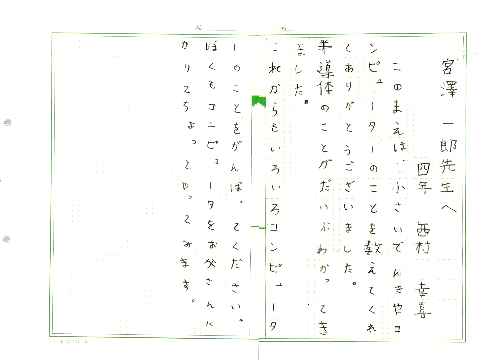 宮澤 一郎先生へ
四年 西村 幸喜
このまえは、小さいでんきやコ
ンピューターのことを教えてくれ
てありがとうございました。
半導体のことがだいぶわかってき
ました。
これからもいろいろコンピュータ
ーのことをがんばってください。
ぼくもコンピュータをお父さんに
かりてちょっとやってみます。